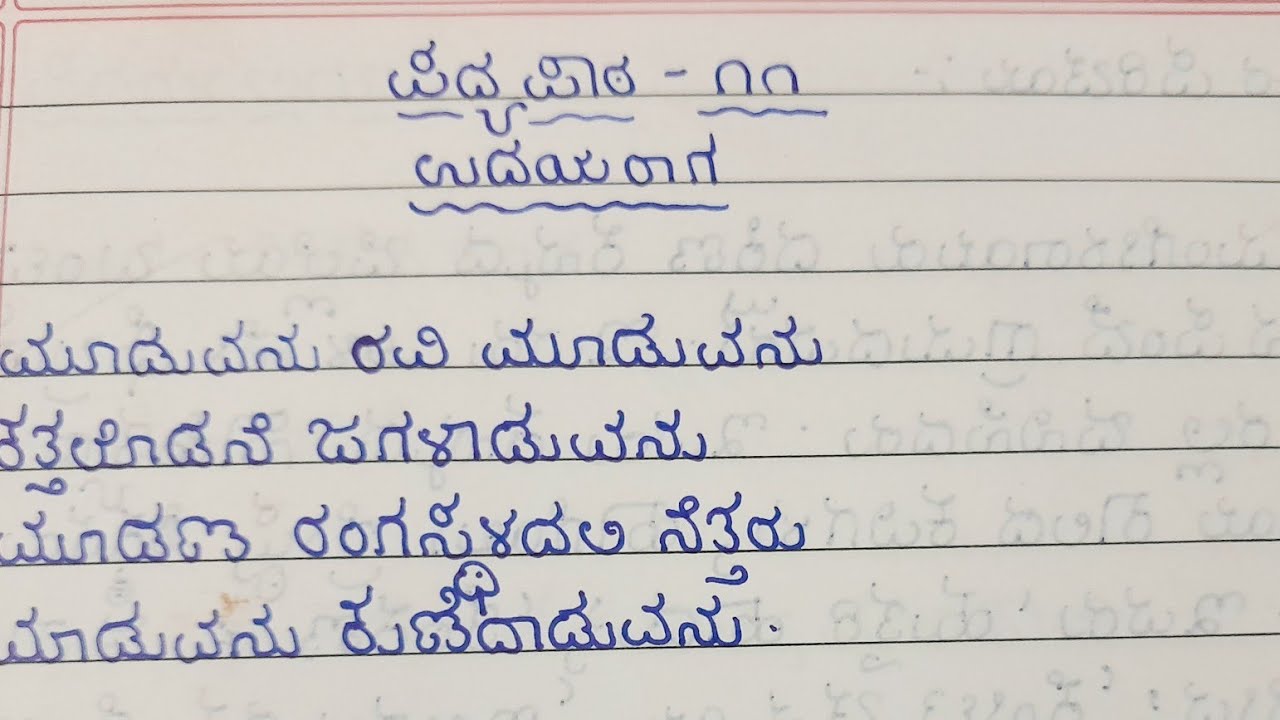 ಪದ್ಯಪಾಠ - ೧೧
ಉದಯರಾಗ
ಮೂಡುವನು ರವಿ ಮೂಡುವನು
ಕತ್ತಲೊಡನೆ ಜಗಳಾಡುವನು
ಮೂಡಣ ರಂಗಸ್ಥಳದಲಿ ನೆತ್ತರು
ಮಾಡುವನು ಕುಣಿದಾಡುವನು.